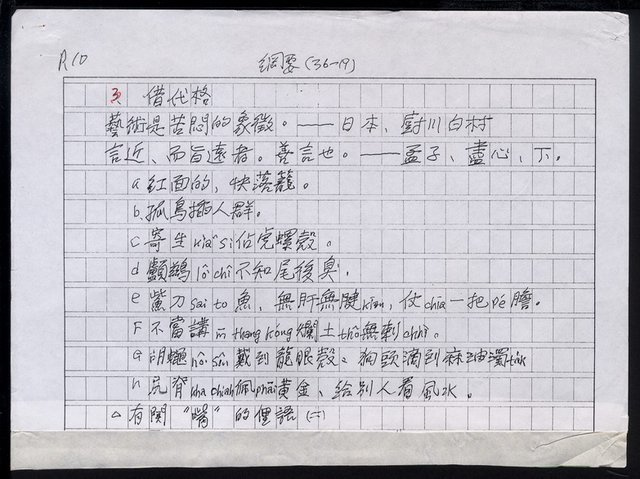 R10
綱要(36-19)
3. 借代格
藝術是苦悶的象徵。——日本、廚川白村
言近、而旨遠者。善言也。——孟子、盡心、下。
a 紅面的，快落籠。
b. 孤鳥插人群。
c 寄生 kiāⁿ si 佔虎螺殼。
d 鸕鶿 lô chî 不知尾後臭.
e 鱟刀 sai to 魚，無肝無腱 kiān, 仗 chìa 一把 pé 膽。
F 不當講 m thang kóng 爛土 thô 無刺 chhì。
G 胡蠅 hô. sîn 戴到龍眼殼、狗頭滴到麻油
h 尻脊 kha chiah 佩 phāiⁿ 黃金、給別人看風水。
△ 有關“嘴”的俚語(六)